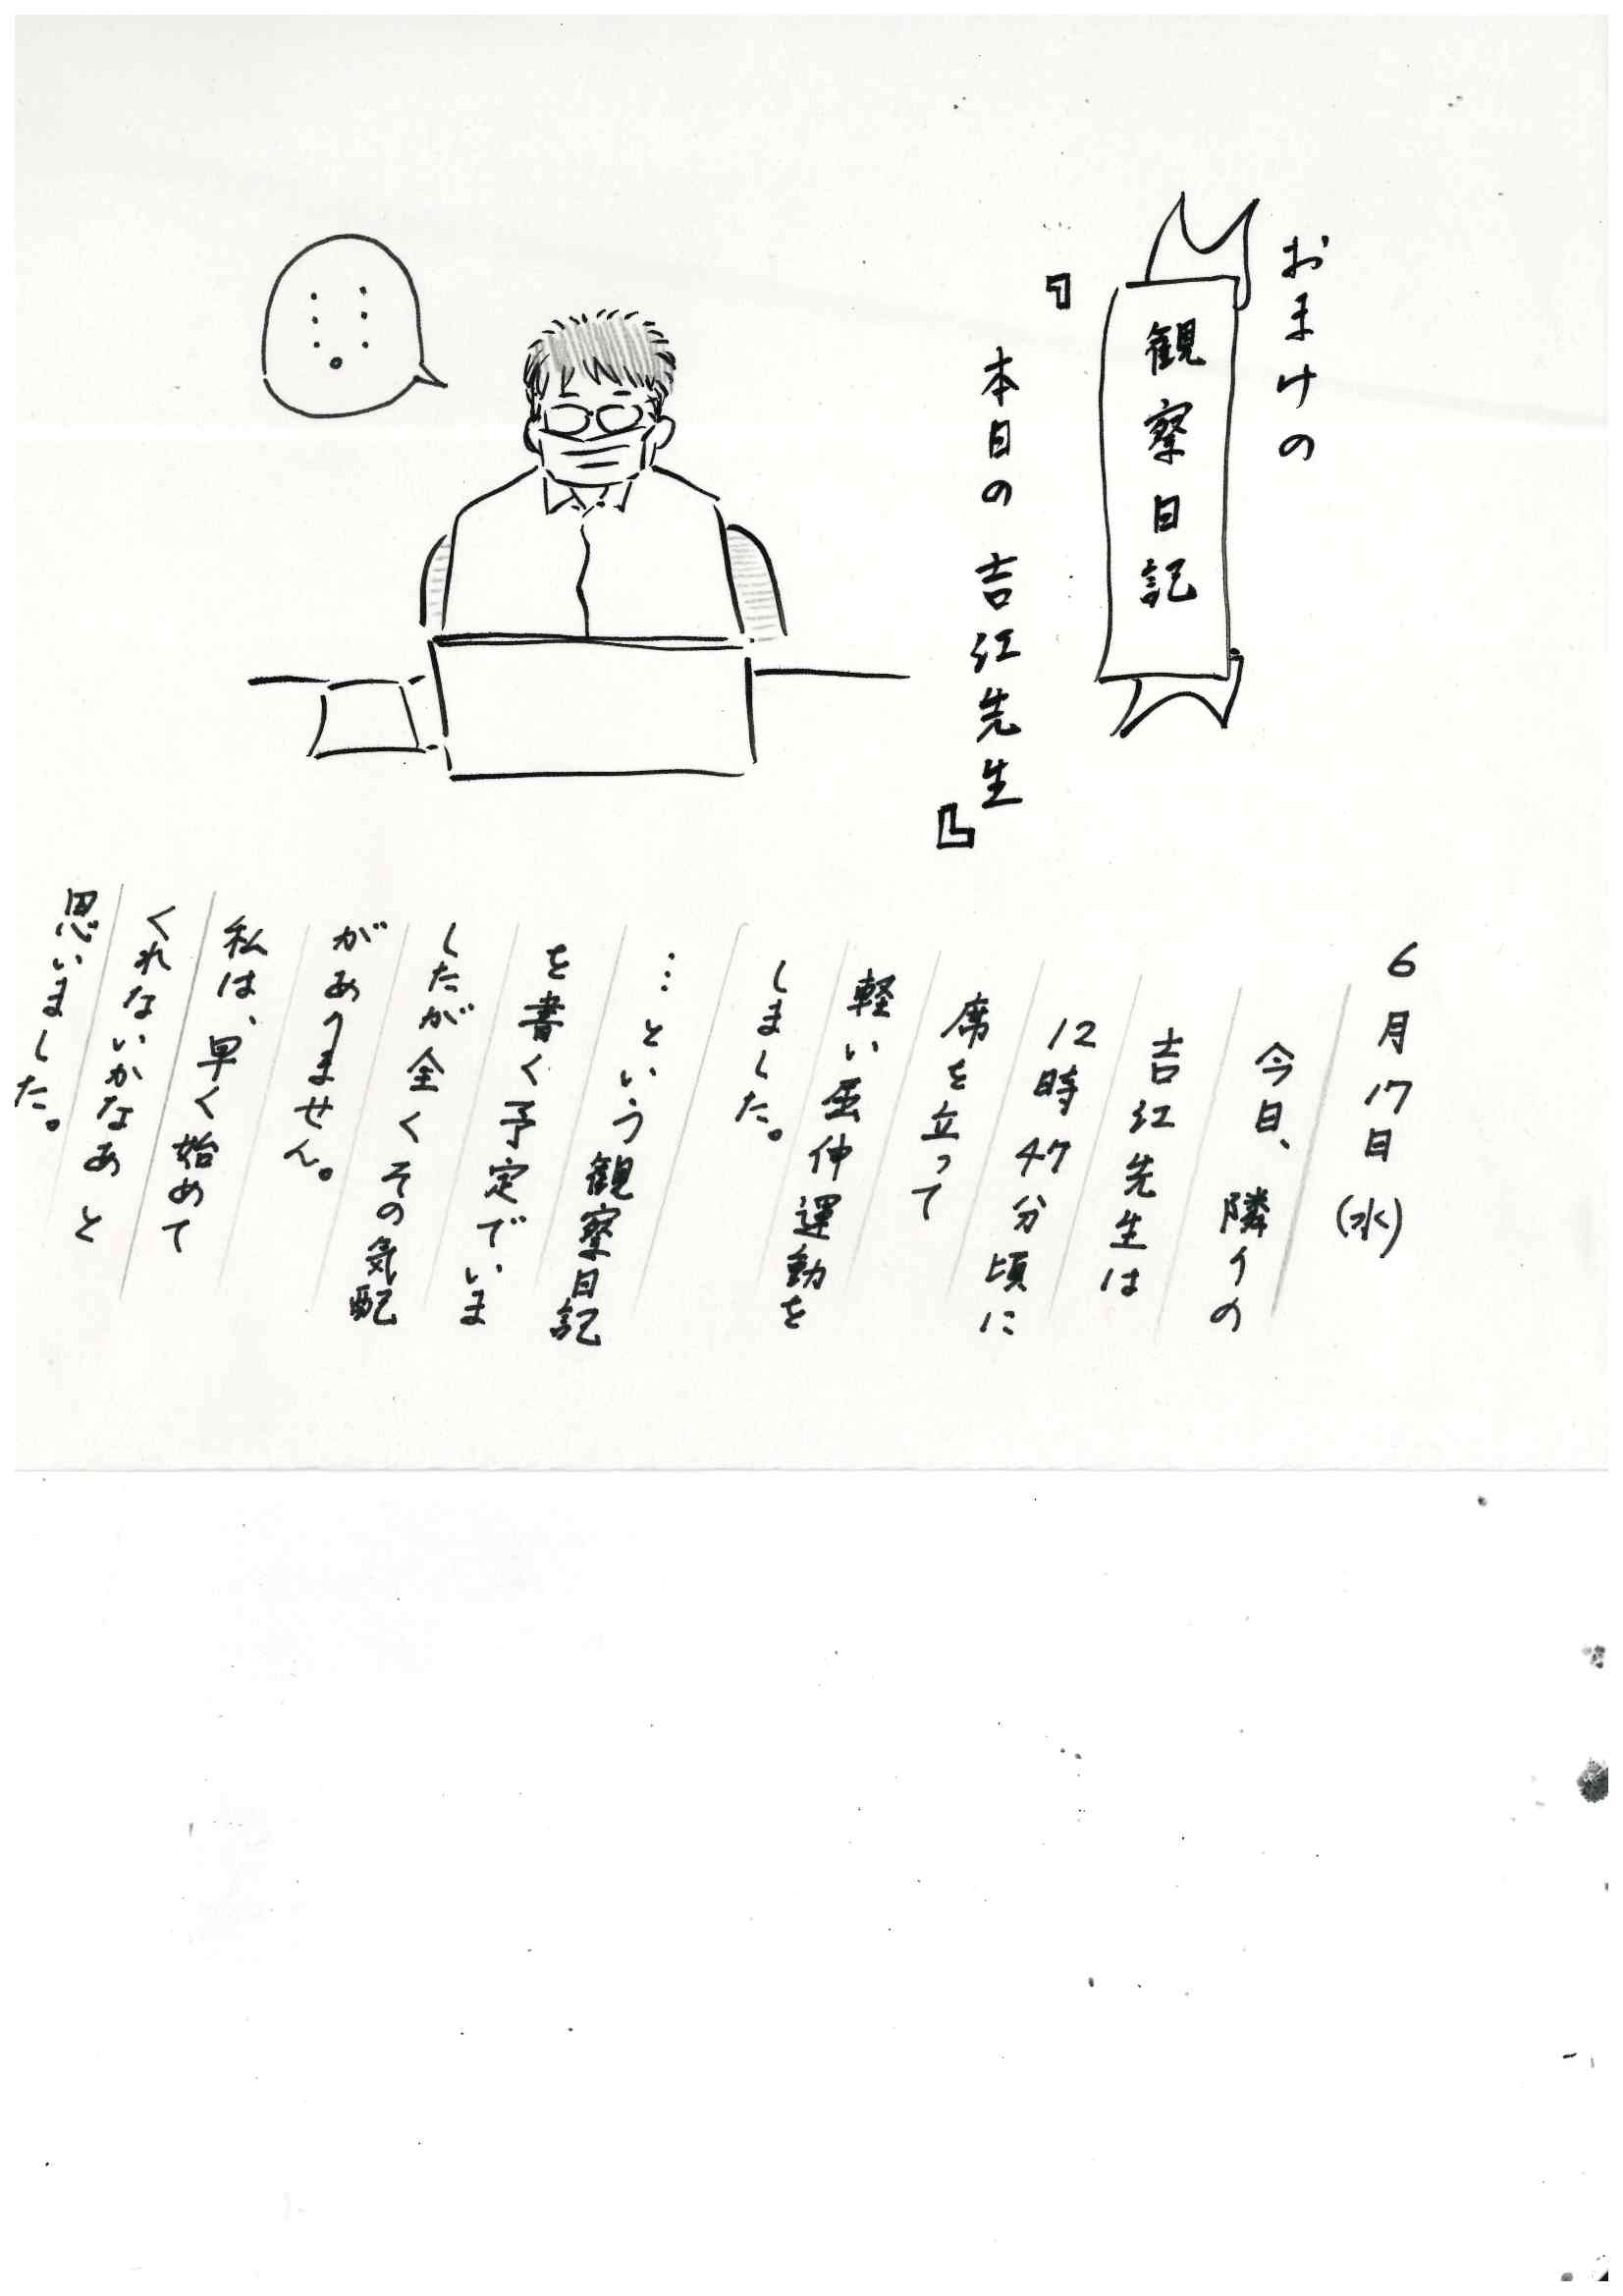 おまけの
観察日記
『本日の 吉江先生』
……。
6月17日(水)
今日、隣りの
吉江先生は
12時47分頃に
席を立って
軽い屈伸運動を
しました。
…という観察日記
を書く予定でいま
したが全くその気配
がありません。
私は、早く始めて
くれないかなあと
思いました。